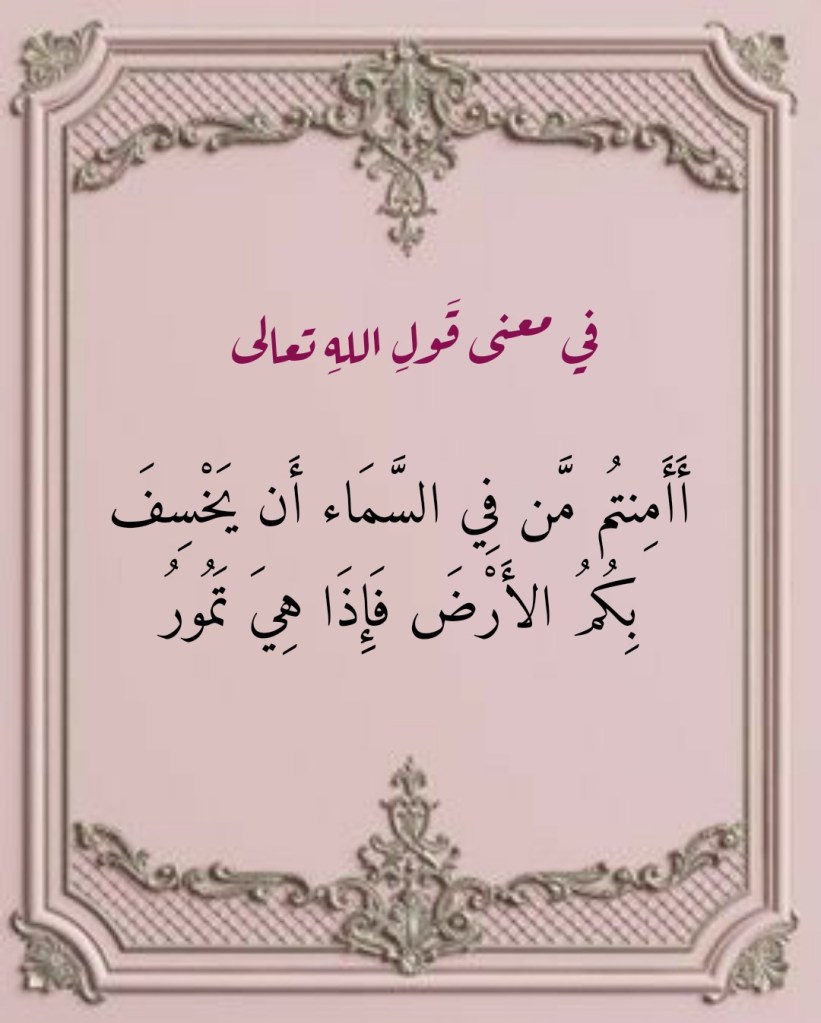 في معنى قَولِ اللهِ تعالى
أَأَمِنتُم مَّن فِي السَّمَاء أَن يَخْسِفَ
بِكُمُ الأَرْضَ فَإِذَا هِيَ تَمُورُ